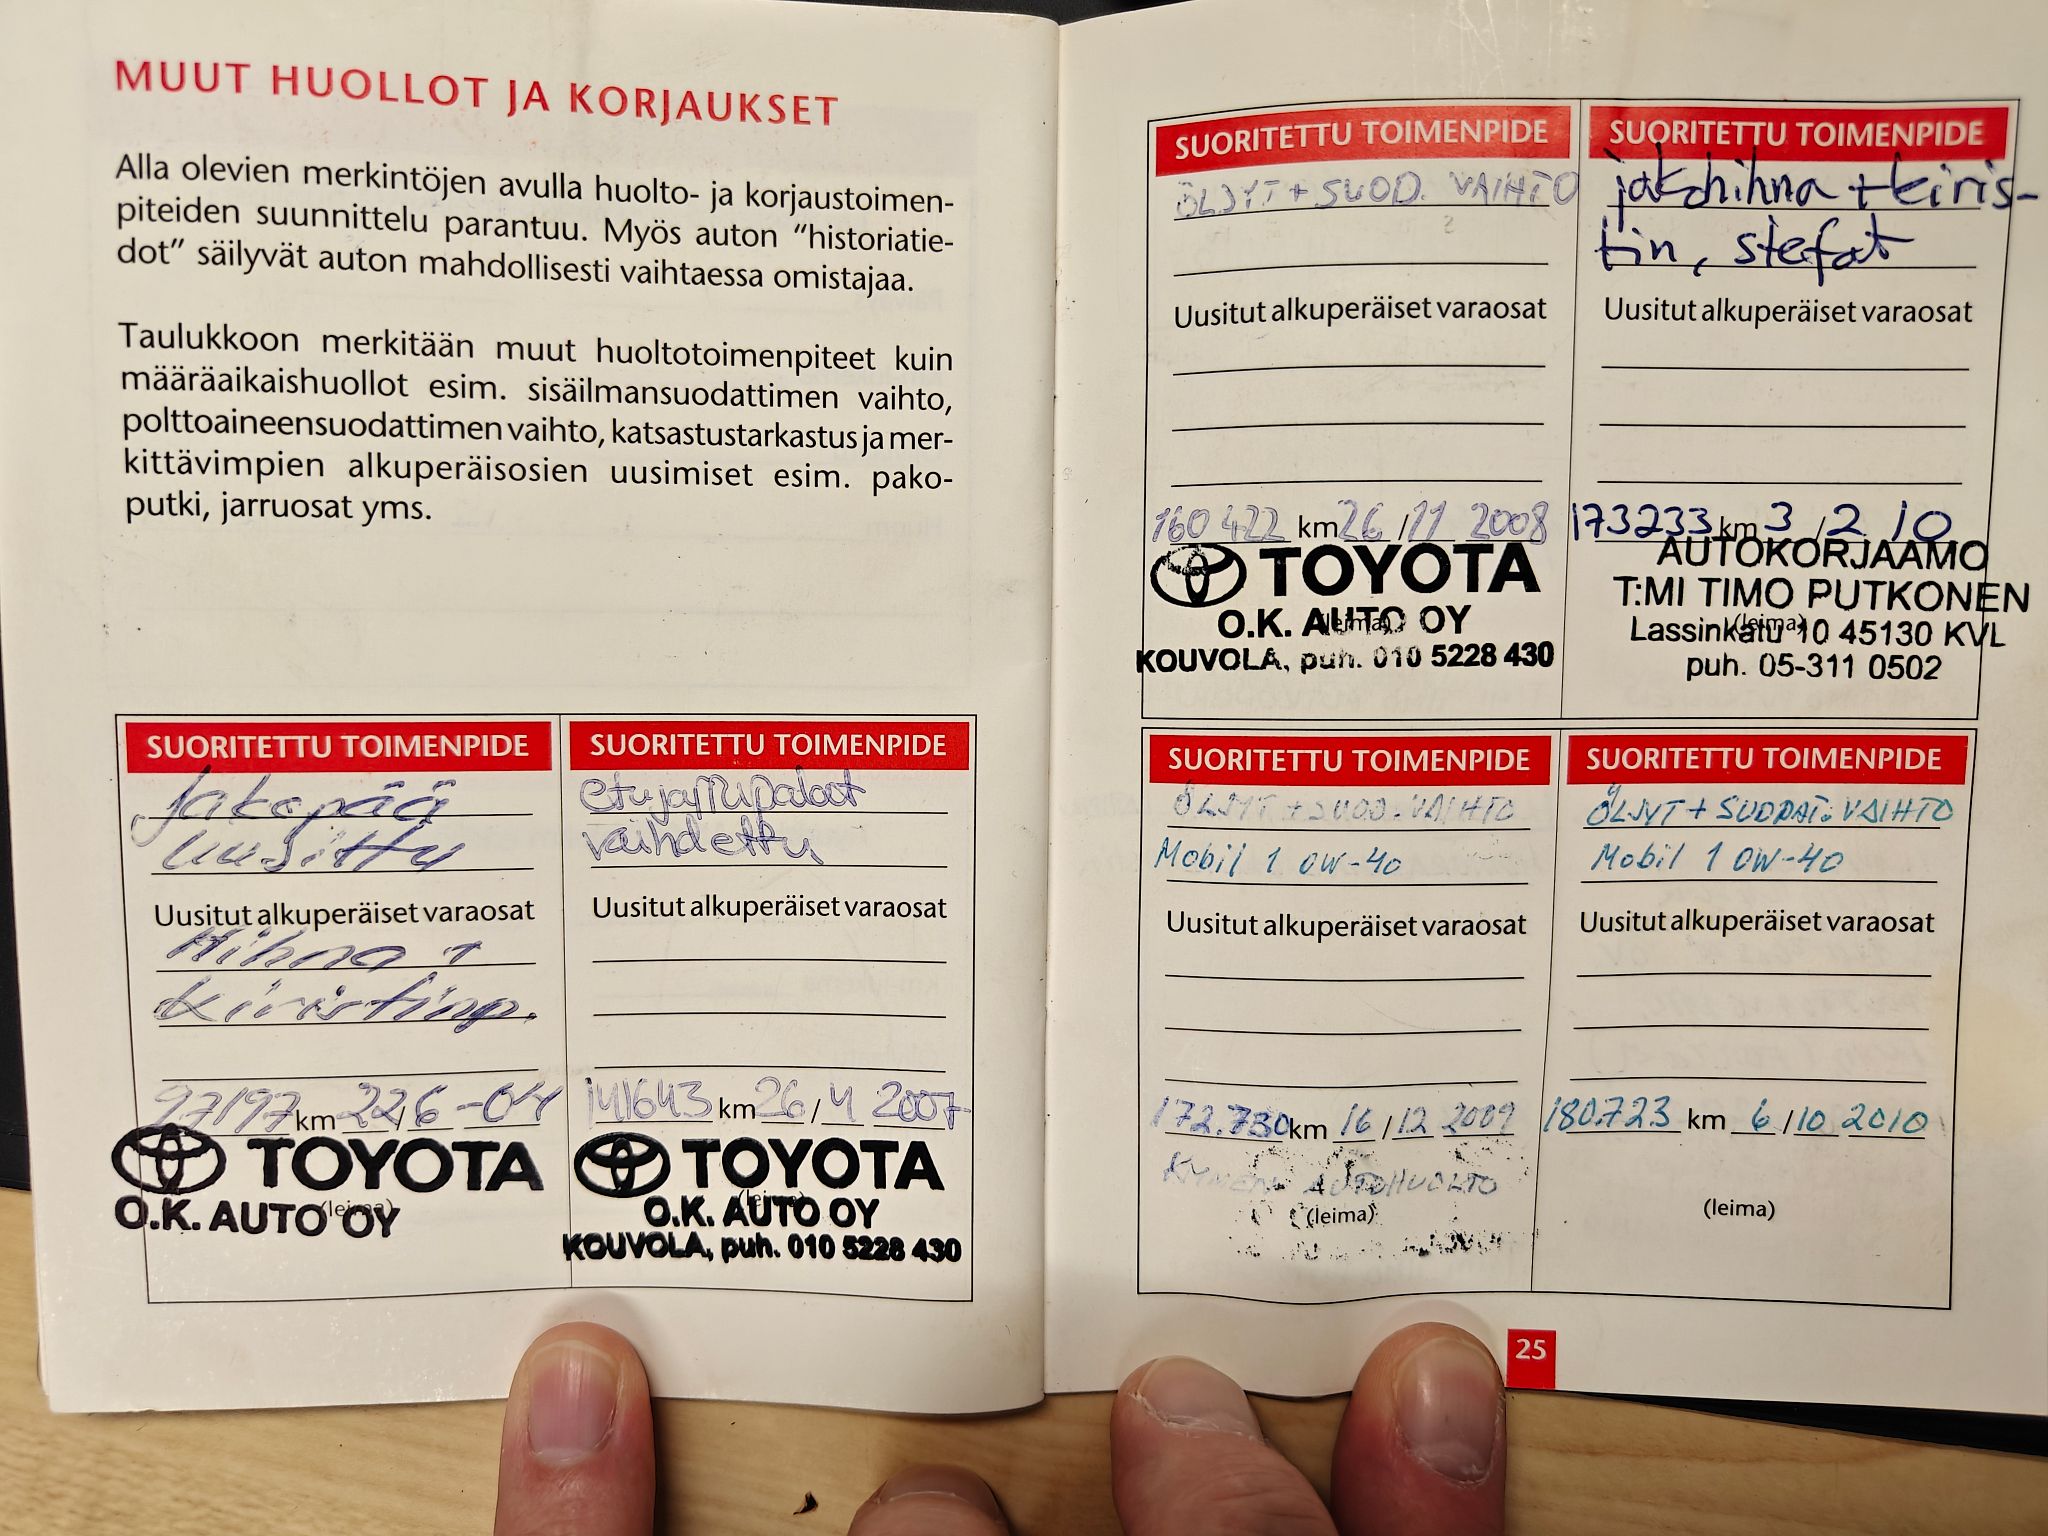 MUUT HUOLLOT JA KORJAUKSET
Alla olevien merkintöjen avulla huolto- ja korjaustoimen-
piteiden suunnittelu parantuu. Myös auton “historiatie-
dot” säilyvät auton mahdollisesti vaihtaessa omistajaa.
Taulukkoon merkitään muut huoltotoimenpiteet kuin
määräaikaishuollot esim. sisäilmansuodattimen vaihto,
polttoaineensuodattimen vaihto, katsastustarkastus ja mer-
kittävimpien alkuperäisosien uusimiset esim. pako-
putki, jarruosat yms.
SUORITETTU TOIMENPIDE
Jakopää
uusittu
Uusitut alkuperäiset varaosat
Hihna +
kiristinp.
97197 km 22/6 -04
TOYOTA
(leima)
O.K. AUTO OY
SUORITETTU TOIMENPIDE
etujarrupalat
vaihdettu
Uusitut alkuperäiset varaosat
141643 km 26/4 2007
TOYOTA
(leima)
O.K. AUTO OY
KOUVOLA, puh. 010 5228 430
SUORITETTU TOIMENPIDE
ÖLJYT + SUOD. VAIHTO
Uusitut alkuperäiset varaosat
160 422 km 26/11 2008
TOYOTA
O.K. AUTO OY
(leima)
KOUVOLA, puh. 010 5228 430
SUORITETTU TOIMENPIDE
jakohihna + kiris-
tin, stefat
Uusitut alkuperäiset varaosat
173233 km 3/2 10
AUTOKORJAAMO
T:MI TIMO PUTKONEN
(leima)
Lassinkatu 10 45130 KVL
puh. 05-311 0502
SUORITETTU TOIMENPIDE
ÖLJYT + SUOD. VAIHTO
Mobil 1 0W-40
Uusitut alkuperäiset varaosat
172.730 km 16/12 2009
KYMEN AUTOHUOLTO
(leima)
SUORITETTU TOIMENPIDE
ÖLJYT + SUODAT. VAIHTO
Mobil 1 0W-40
Uusitut alkuperäiset varaosat
180.723 km 6/10 2010
(leima)
25